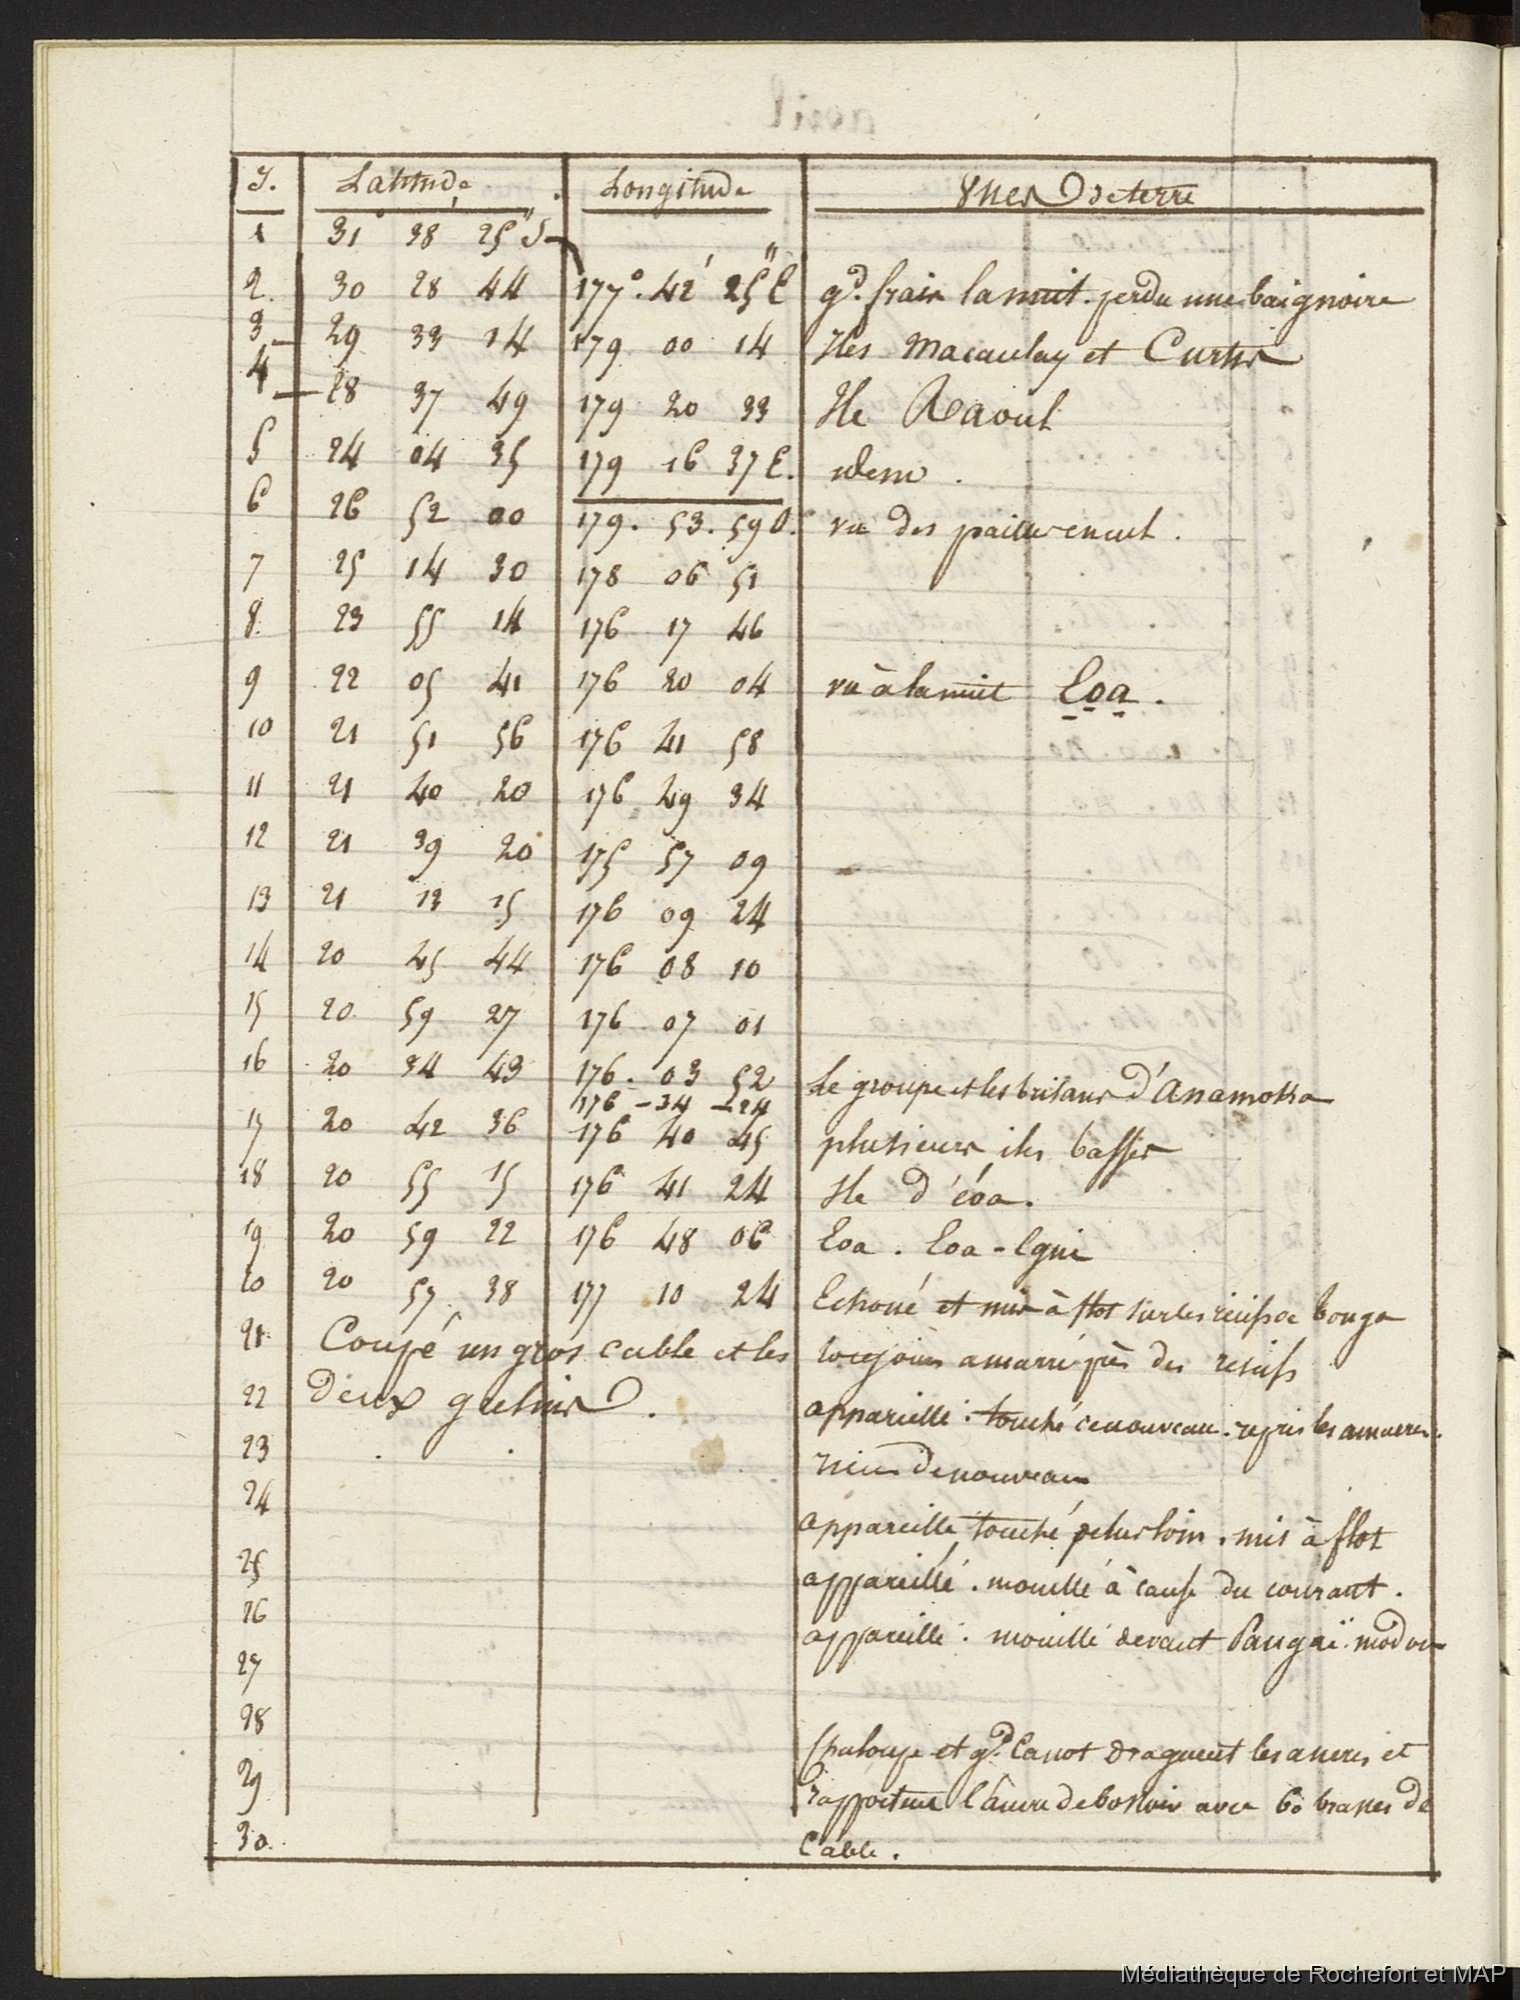 J. Latitude Longitude Vues de terre
1 31° 38' 25" S
2. 30 28 44 177° 42' 25" E gd. frais la nuit. perdu une baignoire
3 29 33 14 179 00 14 Iles Macauley et Curtis
4 28 37 49 179 20 33 Ile Raoul
5 24 04 35 179 16 37 E. idem.
6 26 52 00 179. 53. 59 O. vu des pailleenculs.
7 25 14 30 178 06 51
8. 23 55 14 176 17 46
9 22 05 41 176 20 04 vu à la nuit Eoa.
10 21 51 56 176 41 58
11 21 40 20 176 49 34
12 21 39 20 175 57 09
13 21 13 15 176 09 24
14 20 45 44 176 08 10
15 20 59 27 176 07 01
16 20 34 43 176. 03 52 Le groupe et les brisans d'anamokka
176 - 34 - 24
17 20 42 36 176 40 45 plusieurs iles basses
18 20 55 15 176 41 24 Ile d'éoa.
19 20 59 22 176 48 06 Eoa. Eoa-Egni
20 20 57 38 177 10 24 Echoué et mis à flot sur les récifs de Tonga
21 Coupé un gros cable et les toujours amarré près des recifs
22 deux grelins. appareillé. touché de nouveau. repris les amarres.
23 rien de nouveau
24 appareillé touché plus loin. mis à flot
25 appareillé. mouillé à cause du courant.
26 appareillé. mouillé devant Pangaï. modou
27
28 Chaloupe et gd. Canot draguent les ancres et
29 rapportent l'ancre de bossoir avec 60 brasses de
30. Cable.
Médiathèque de Rochefort et MAP